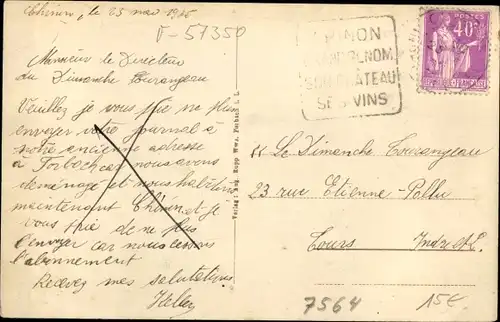 Chinon, le 25 mai 19
F-57350
Monsieur le Directeur
du Dimanche Tourangeau
Veuillez je vous prie ne plus
envoyer votre journal à
notre ancienne adresse
à Forbach car nous avons
déménagé et nous habitons
maintenant Chinon et je
vous prie de ne plus
l'envoyer car nous cessons
l'abonnement
Recevez mes salutations
CHINON
GRAND RENOM
SON CHATEAU
SES VINS
POSTES
40c
Verlag: Aug. Hopp Wwe. Forbach i. L.
Le Dimanche Tourangeau
23 rue Etienne-Pallu
Tours Indre et L.
7564
15€